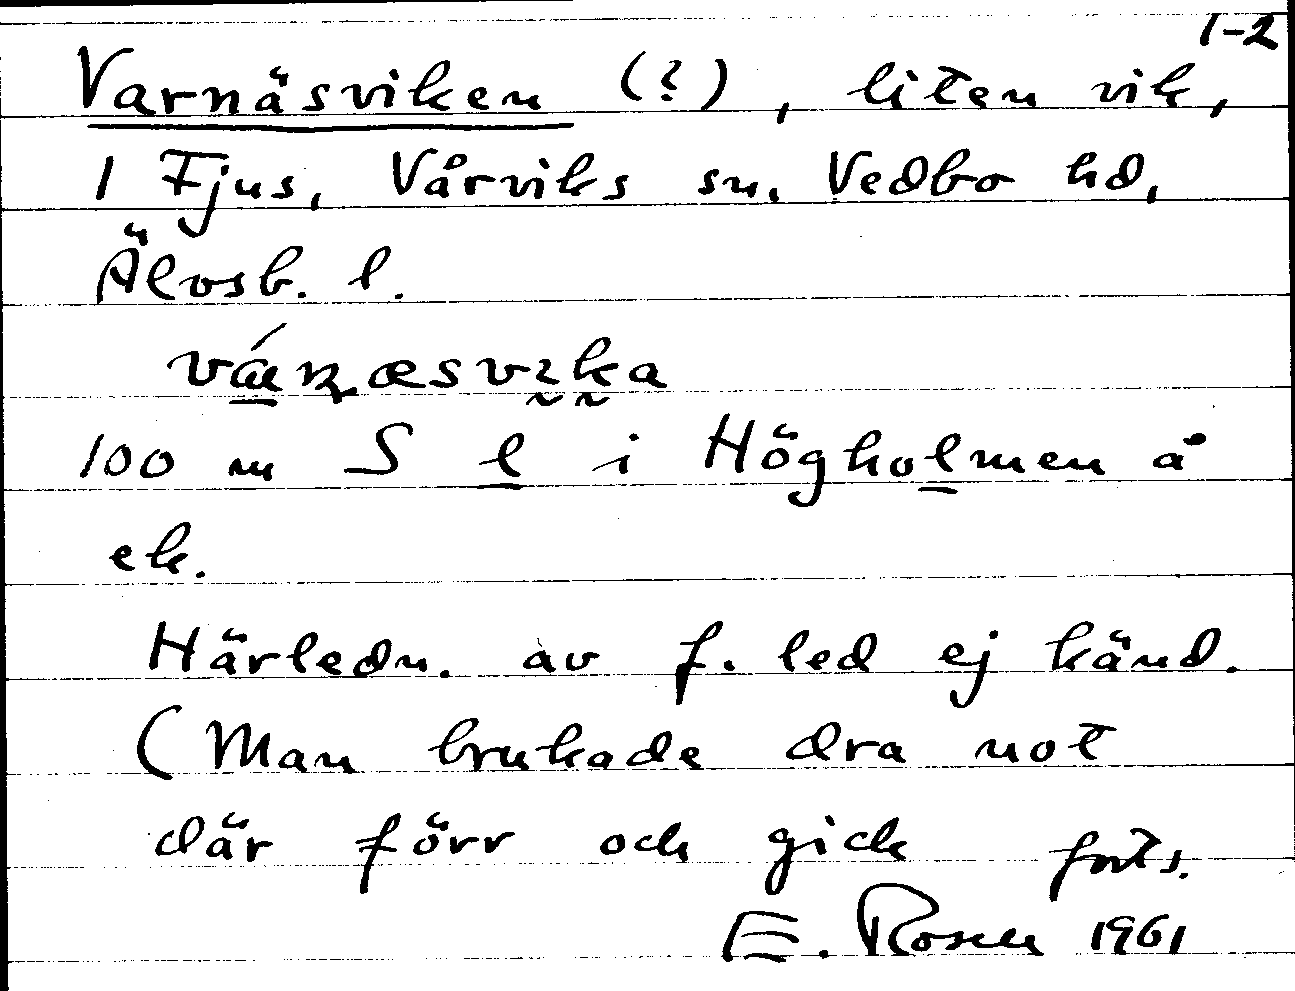 1-2
Varnäsviken (?), liten vik,
1 Fjus, Vårviks sn. Vedbo hd,
Älvsb. l.
100 m S l i Högholmen å
ek.
Härledn. av f. led ej känd.
(Man brukade dra not
där förr och gick forts.
E. Rosen 1961